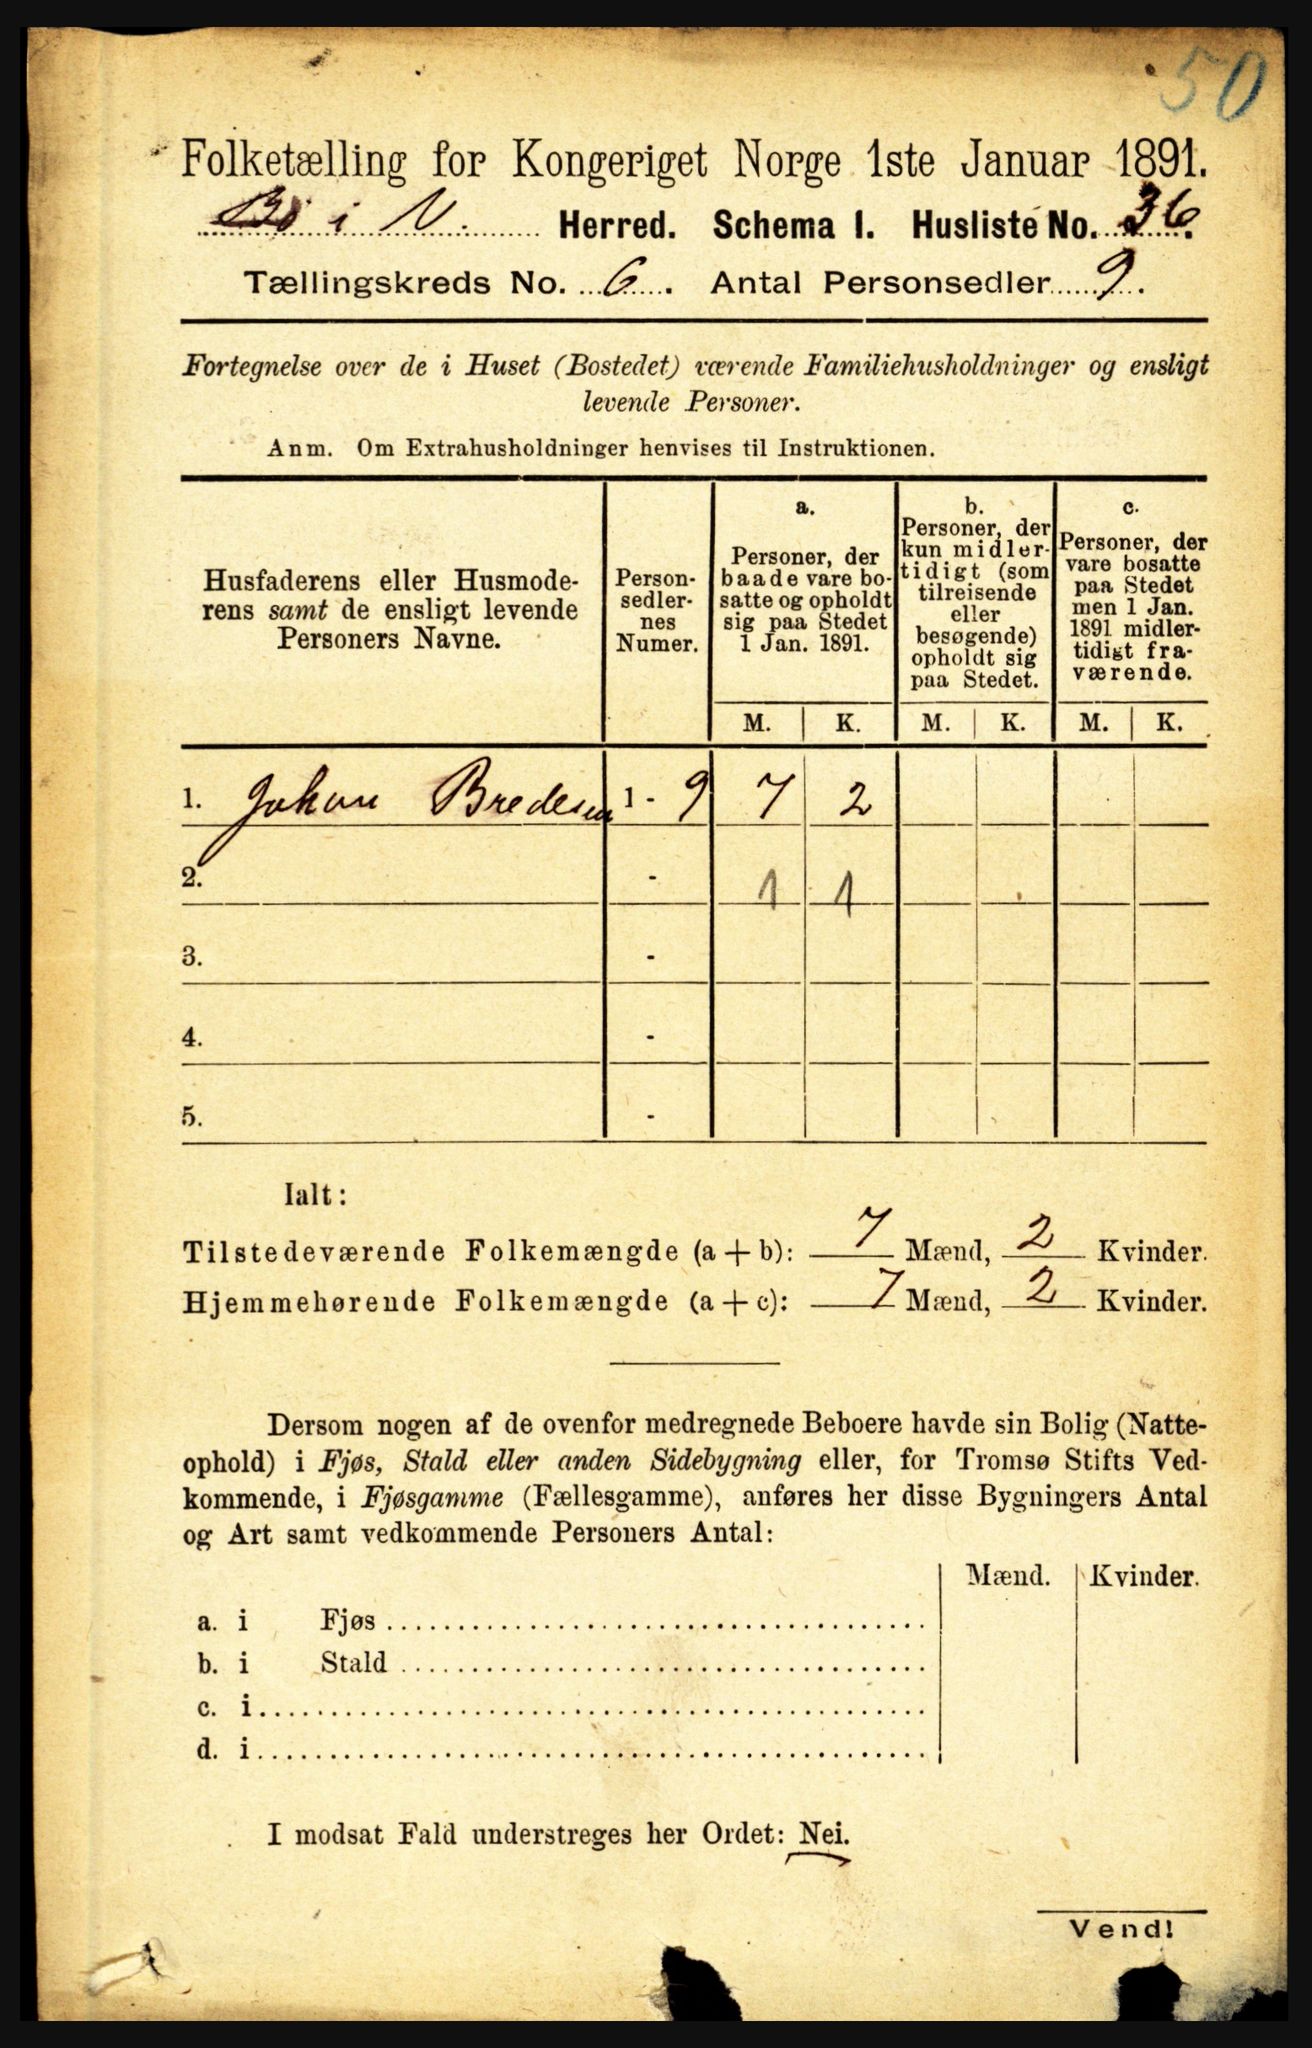 50
Folketælling for Kongeriget Norge 1ste Januar 1891.
Bö i V. Herred. Schema I. Husliste No. 36.
Tællingskreds No. 6. Antal Personsedler 9.
Fortegnelse over de i Huset (Bostedet) værende Familiehusholdninger og ensligt
levende Personer.
Anm. Om Extrahusholdninger henvises til Instruktionen.
Husfaderens eller Husmode-
rens samt de ensligt levende
Personers Navne.
Person-
sedler-
nes
Numer.
a.
Personer, der
baade vare bo-
satte og opholdt
sig paa Stedet
1 Jan. 1891.
b.
Personer, der
kun midler-
tidigt (som
tilreisende
eller
besøgende)
opholdt sig
paa Stedet.
c.
Personer, der
vare bosatte
paa Stedet
men 1 Jan.
1891 midler-
tidigt fra-
værende.
M. K. M. K. M. K.
1. Johan Bredesen 1 - 9 7 2
2. - 1 1
3. -
4. -
5. -
Ialt:
Tilstedeværende Folkemængde (a + b): 7 Mænd, 2 Kvinder.
Hjemmehørende Folkemængde (a + c): 7 Mænd, 2 Kvinder.
Dersom nogen af de ovenfor medregnede Beboere havde sin Bolig (Natte-
ophold) i Fjøs, Stald eller anden Sidebygning eller, for Tromsø Stifts Ved-
kommende, i Fjøsgamme (Fællesgamme), anføres her disse Bygningers Antal
og Art samt vedkommende Personers Antal:
Mænd. Kvinder.
a. i Fjøs
b. i Stald
c. i
d. i
I modsat Fald understreges her Ordet: Nei.
Vend!